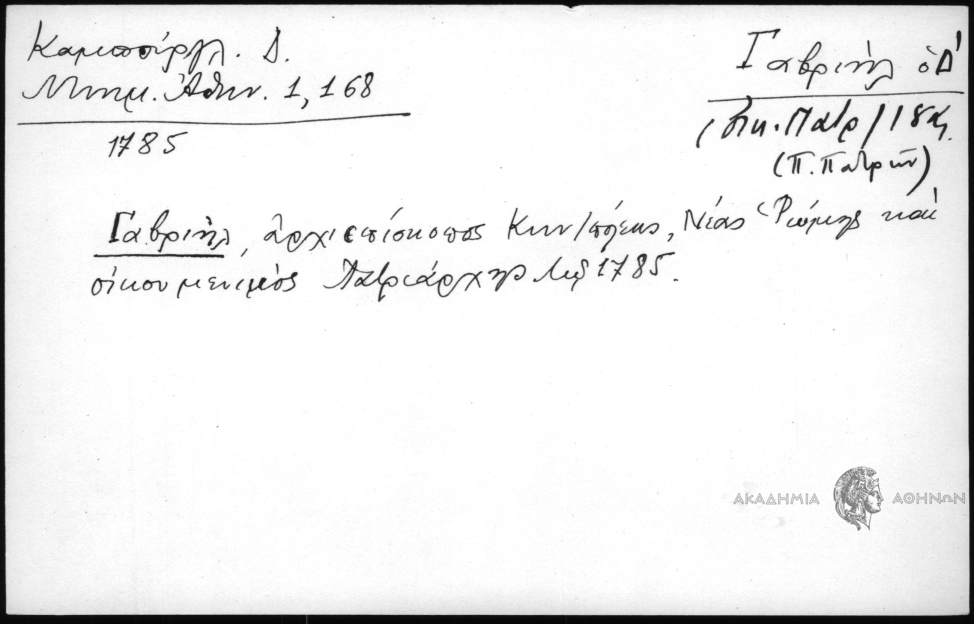 Καμπούργλ. Δ.
Μνημ. Ἀθην. 1, 168
1785
Γαβριὴλ ὁ Δ'
Οἰκ. Πατρ / 18 αἰ.
(Π. Πατρῶν)
Γαβριὴλ, ἀρχιεπίσκοπος Κων/πόλεως, Νέας Ῥώμης καὶ
οἰκουμενικὸς Πατριάρχης 1785.
ΑΚΑΔΗΜΙΑ ΑΘΗΝΩΝ